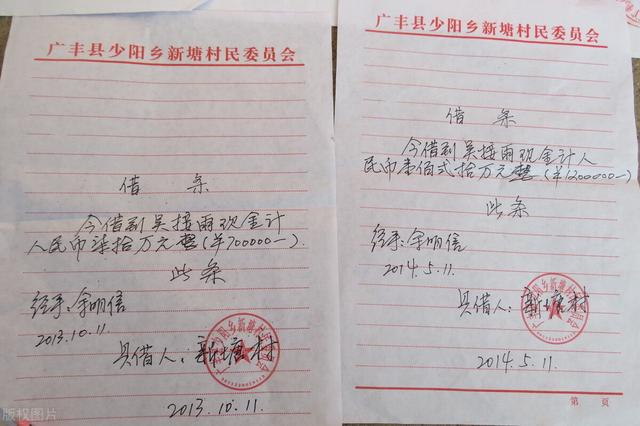 广丰县少阳乡新塘村民委员会
借 条
今借到吴接雨现金计
人民币柒拾万元整(¥700000—).
此条
经手:余明信
2013.10.11
具借人:新塘村
2013.10.11.
广丰县少阳乡新塘村民委员会
借 条
今借到吴接雨现金计人
民币壹佰弍拾万元整(¥1200000—)
此条
经手:余明信
2014.5.11.
具借人:新塘村
2014.5.11.
第 页
版权图片